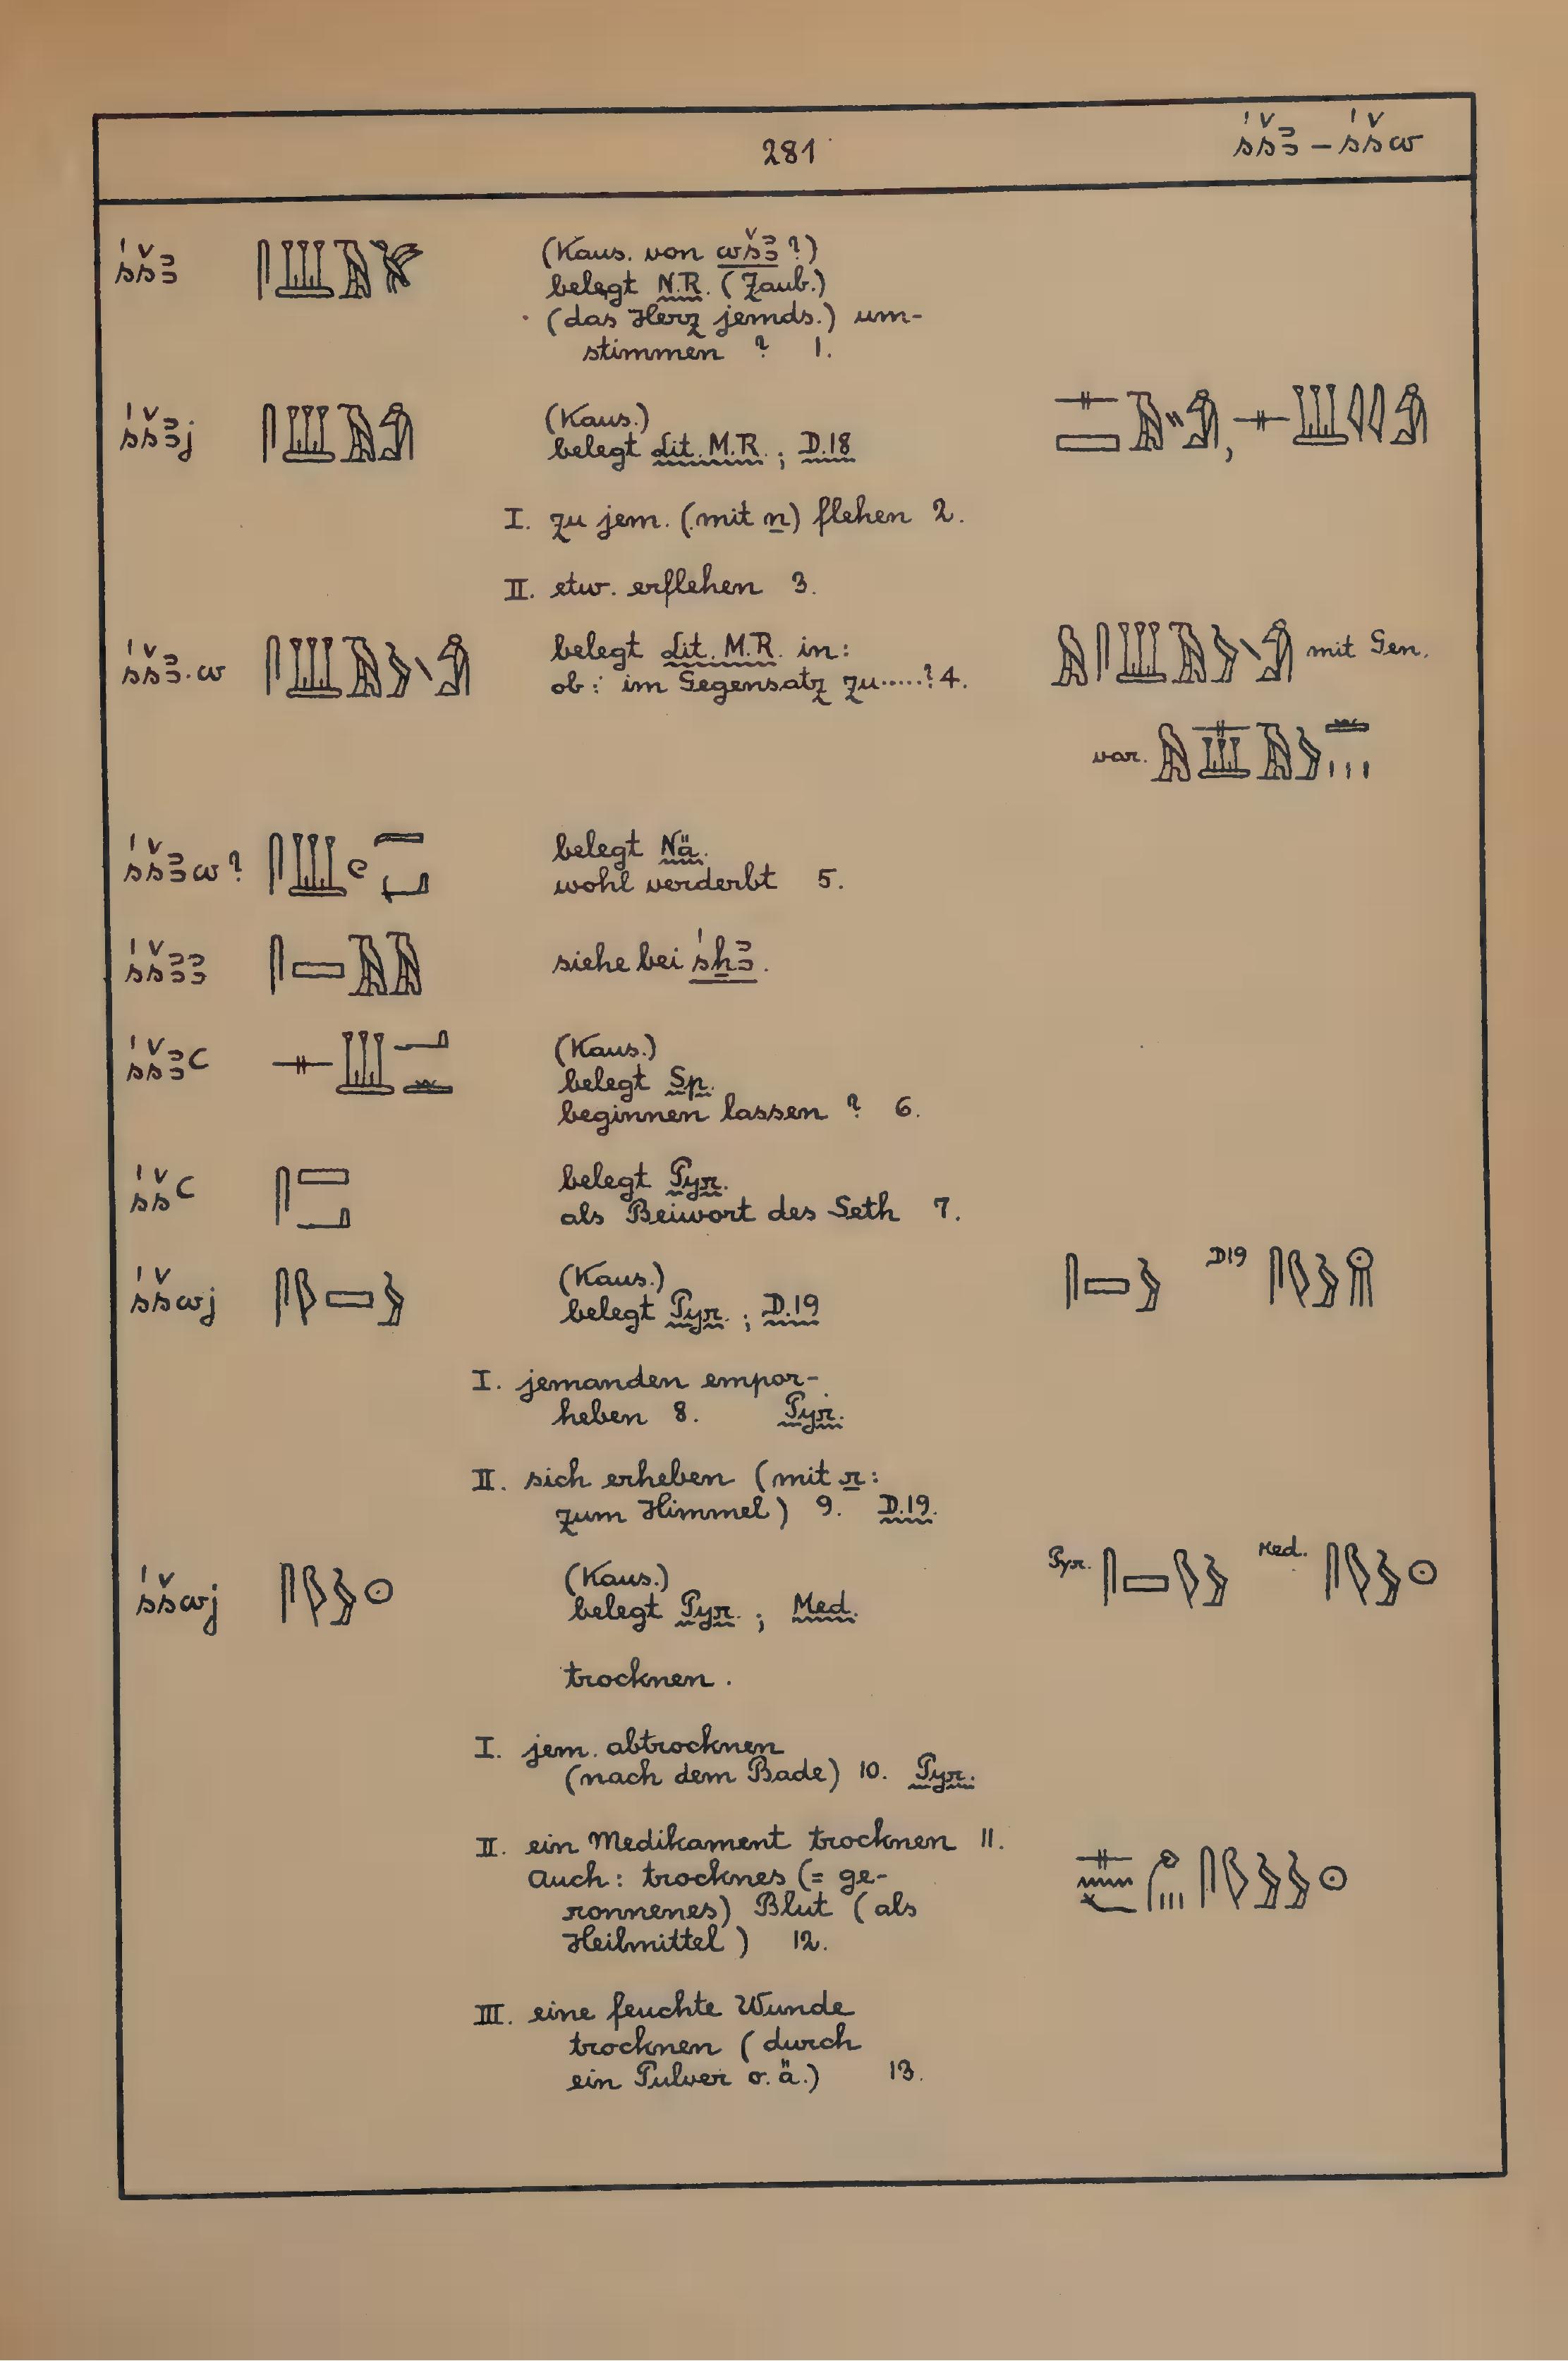 281
śšꜣ – śšw
śšꜣ
(Kaus. von wšꜣ ?)
belegt N.R. (Zaub.)
(das Herz jemds.) um-
stimmen ? 1.
śšꜣj
(Kaus.)
belegt Lit. M.R. ; D.18
I. zu jem. (mit n) flehen 2.
II. etw. erflehen 3.
śšꜣ.w
belegt Lit. M.R. in:
mit Gen.
ob: im Gegensatz zu.....? 4.
var.
śšꜣw?
belegt Nä.
wohl verderbt 5.
śšꜣꜣ
siehe bei śẖꜣ.
śšꜣꜥ
(Kaus.)
belegt Sp.
beginnen lassen ? 6.
śšꜥ
belegt Pyr.
als Beiwort des Seth 7.
śšwj
(Kaus.)
D19
belegt Pyr. ; D.19
I. jemanden empor-
heben 8. Pyr.
II. sich erheben (mit r:
zum Himmel) 9. D.19.
śšwj
(Kaus.)
Pyr. Med.
belegt Pyr. ; Med.
trocknen .
I. jem. abtrocknen
(nach dem Bade) 10. Pyr.
II. ein Medikament trocknen 11.
Auch: trocknes (= ge-
ronnenes) Blut (als
Heilmittel) 12.
III. eine feuchte Wunde
trocknen (durch
ein Pulver o. ä.) 13.